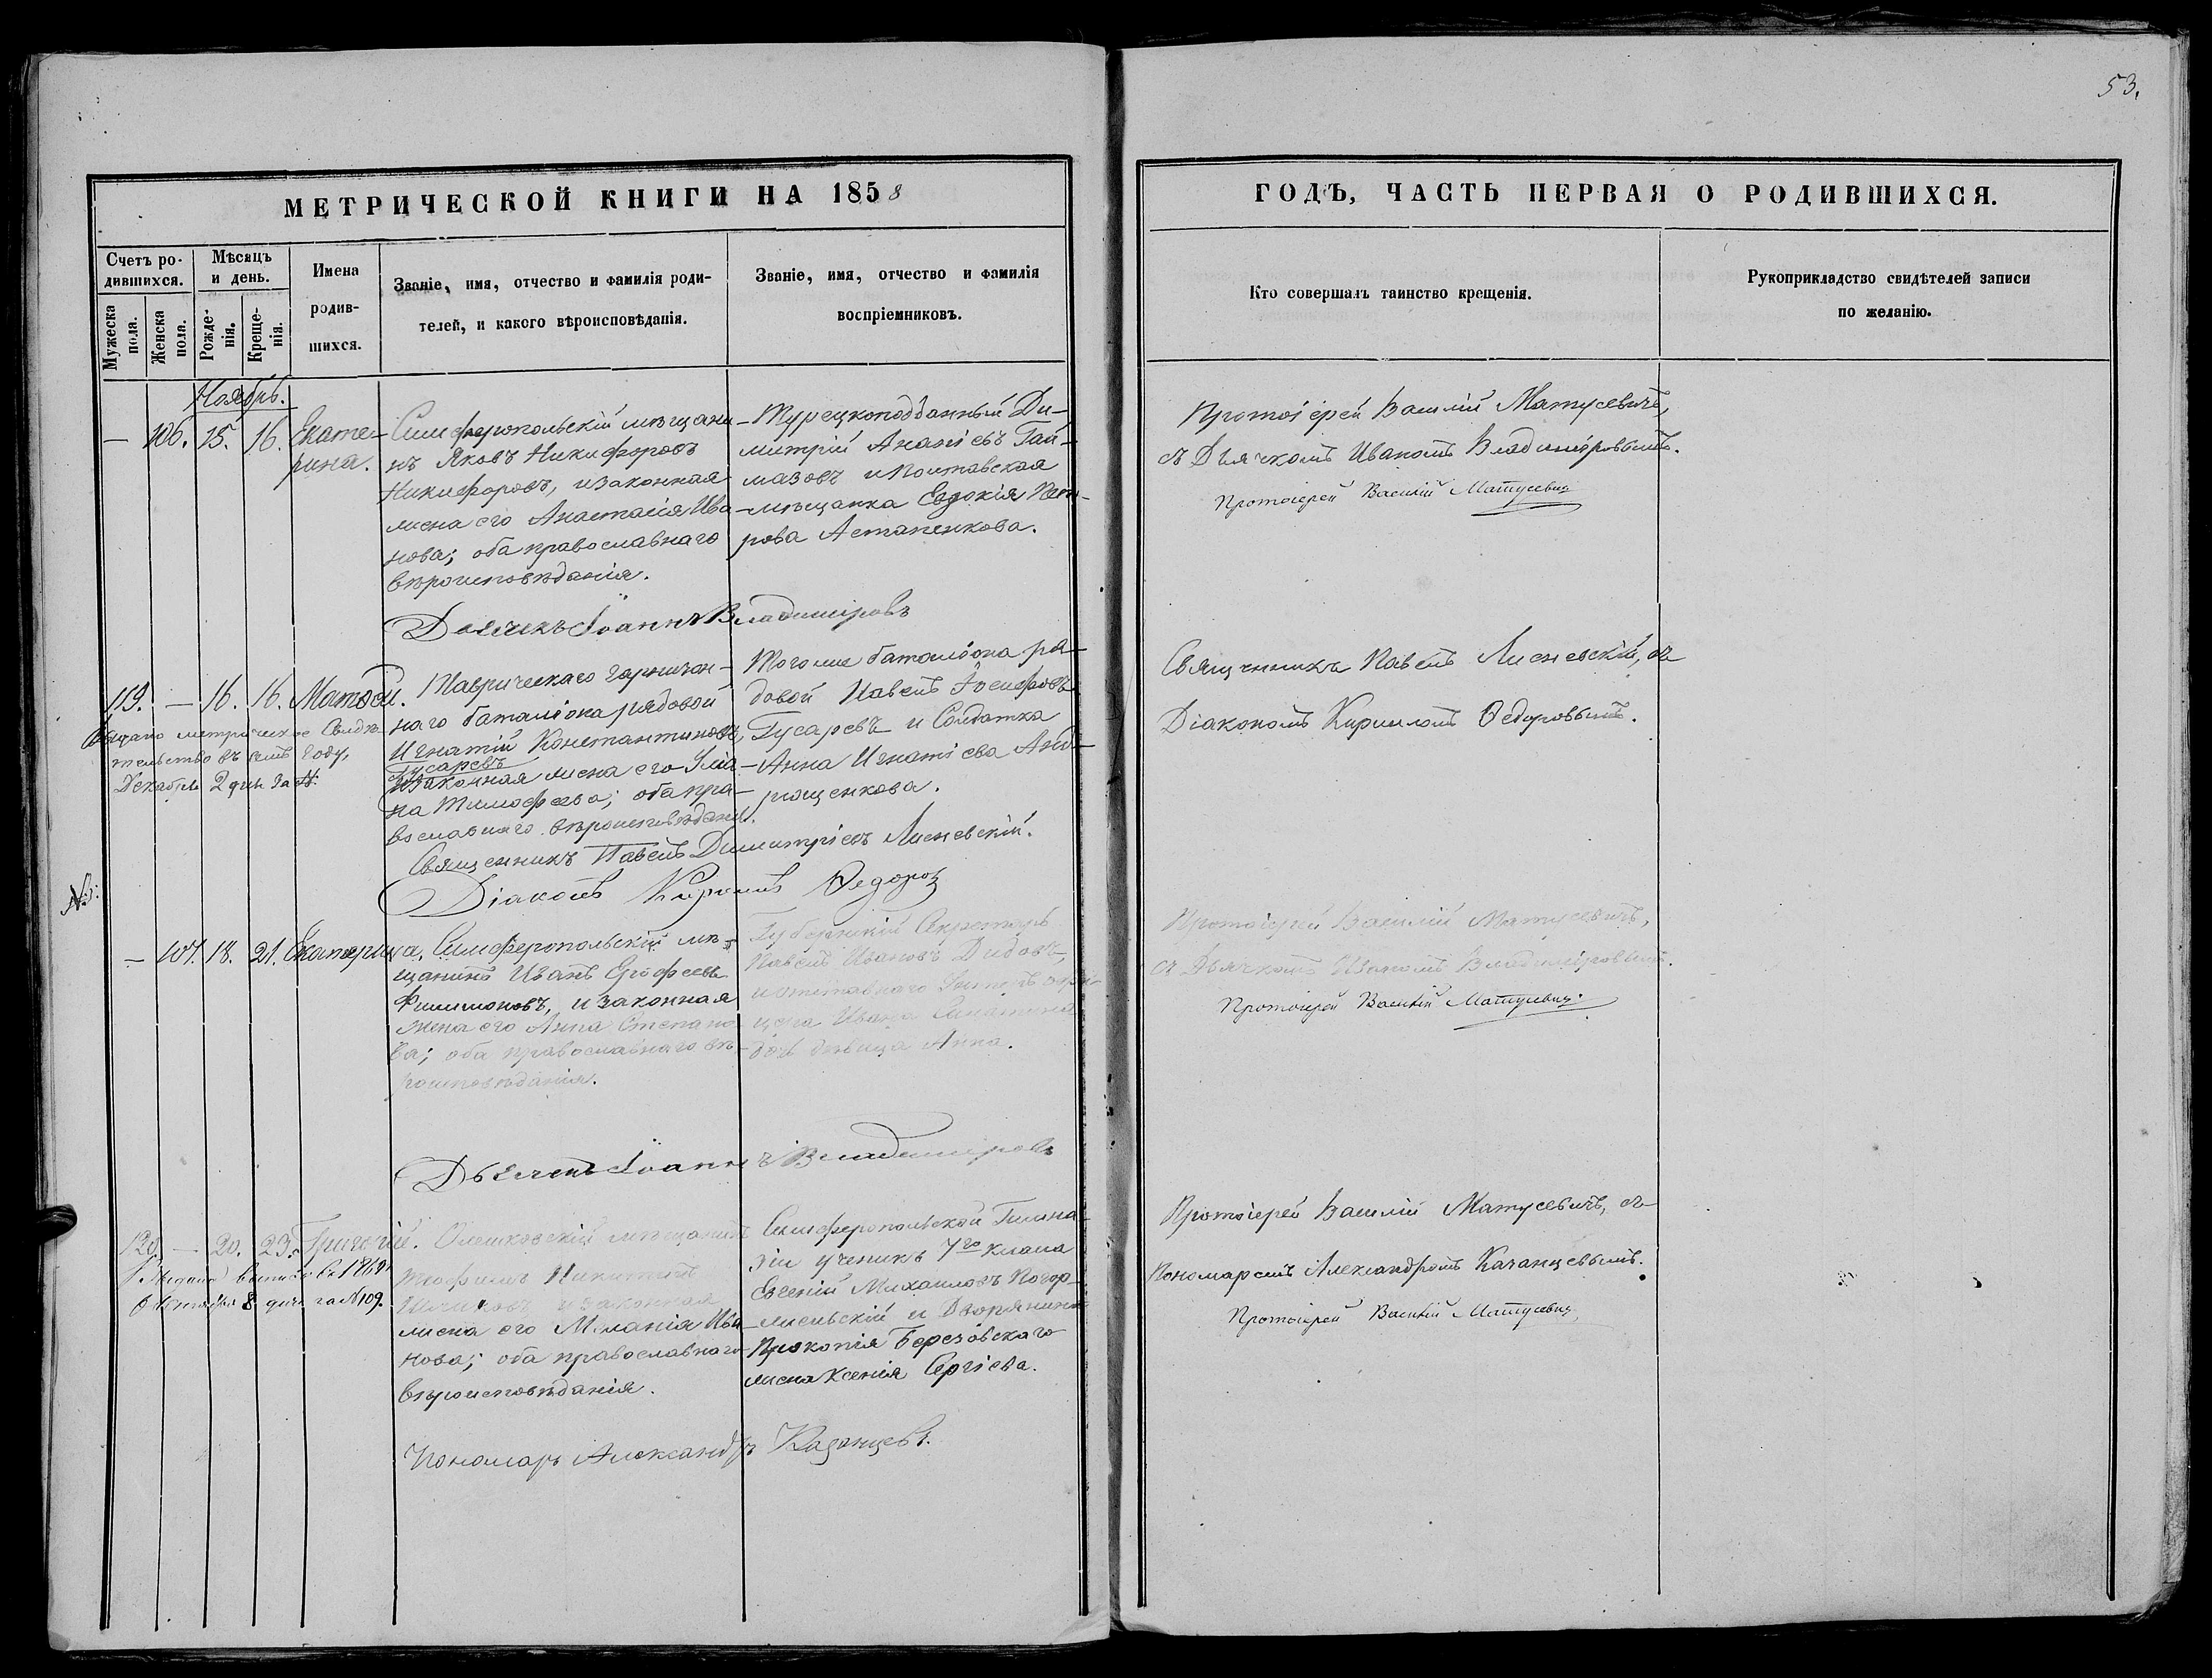 53.
МЕТРИЧЕСКОЙ КНИГИ НА 1858
ГОДЪ, ЧАСТЬ ПЕРВАЯ О РОДИВШИХСЯ.
Счетъ ро-
дившихся.
Мужеска
пола.
Женска
пола.
Мѣсяцъ
и день.
Рожде-
нія.
Креще-
нія.
Имена
родив-
шихся.
Званіе, имя, отчество и фамилія роди-
телей, и какого вѣроисповѣданія.
Званіе, имя, отчество и фамилія
воспріемниковъ.
Кто совершалъ таинство крещенія.
Рукоприкладство свидѣтелей записи
по желанію.
Ноябрь.
— 106. 15. 16. Екате-
рина.
Симферопольскій мѣщани-
нъ Яковъ Никифоровъ
Никифоровъ, и законная
жена его Анастасія Ива-
нова; оба православнаго
вѣроисповѣданія.
Турецкоподданный Ди-
митрій Ананіевъ Гай-
мазовъ и Полтавская
мѣщанка Евдокія Пет-
рова Астапенкова.
Протоіерей Василій Матусевичъ,
съ Дьячкомъ Иваномъ Владиміровымъ.
Протоіерей Василій Матусевич
Дьячекъ Іоаннъ Владиміровъ
119. — 16. 16. Матвѣй.
Выдано метрическое Свидѣ-
тельство въ семъ году,
Декабря 2 дня за №.
Таврическаго гарнизон-
наго баталіона рядовой
Игнатій Константиновъ
Гусаревъ
и законная жена его Улія-
на Тимофеева; оба пра-
вославнаго вѣроисповѣданія.
Того же баталіона ря-
довой Павелъ Іосифовъ
Гусаревъ и Солдатка
Анна Игнатіева Анд-
рющенкова.
Священникъ Павелъ Лисневскій, съ
Діакономъ Кириломъ Ѳедоровымъ.
Священникъ Павелъ Димитріевъ Лисневскій.
Діаконъ Кирилъ Ѳедоровъ
№:
— 107. 18. 21. Екатерина.
Симферопольскій мѣ-
щанинъ Иванъ Ерофеевъ
Филимоновъ, и законная
жена его Анна Степано-
ва; оба православнаго вѣ-
роисповѣданія.
Губернскій Секретарь
Павелъ Ивановъ Дидовъ,
и отставнаго Унтеръ офи-
цера Ивана
дочь дѣвица Анна.
Протоіерей Василій Матусевичъ,
съ Дьячкомъ Иваномъ Владиміровымъ.
Протоіерей Василій Матусевич.
Дьячекъ Іоаннъ Владиміровъ
120. — 20. 23. Григорій.
Выдана выпись въ 1869
Октября 8 дня за № 109.
Олешковскій мѣщанинъ
Теофилъ Никитинъ
и законная
жена его Меланія Ива-
нова; оба православнаго
вѣроисповѣданія.
Симферопольской Гимна-
зіи ученикъ 7го класса
Евгеній Михаиловъ Погор-
жельскій и Дворянина
Прокопія Березовскаго
жена Ксенія Сергіева.
Протоіерей Василій Матусевичъ, съ
Пономаремъ Александромъ Казанцевымъ.
Протоіерей Василій Матусевич
Пономарь Александръ Казанцевъ.